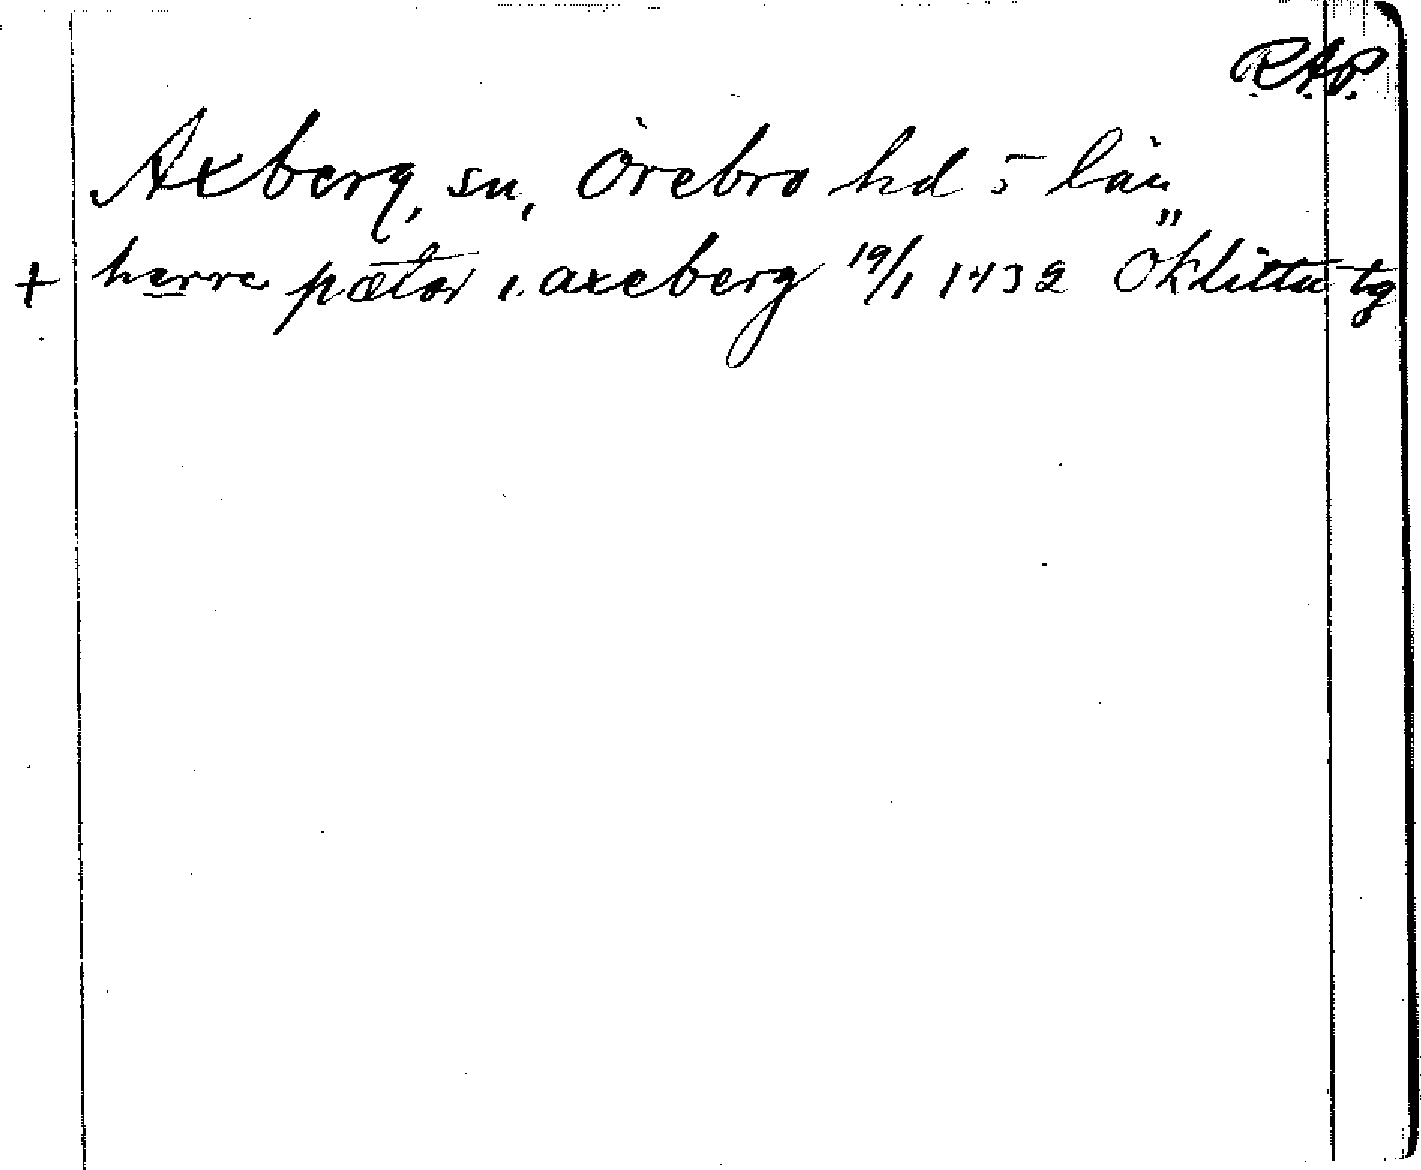 R.A.P.
Axberg, sn, Örebro hd o län
+ herre pætar i axeberg 19/1 1432 Öknitta tg